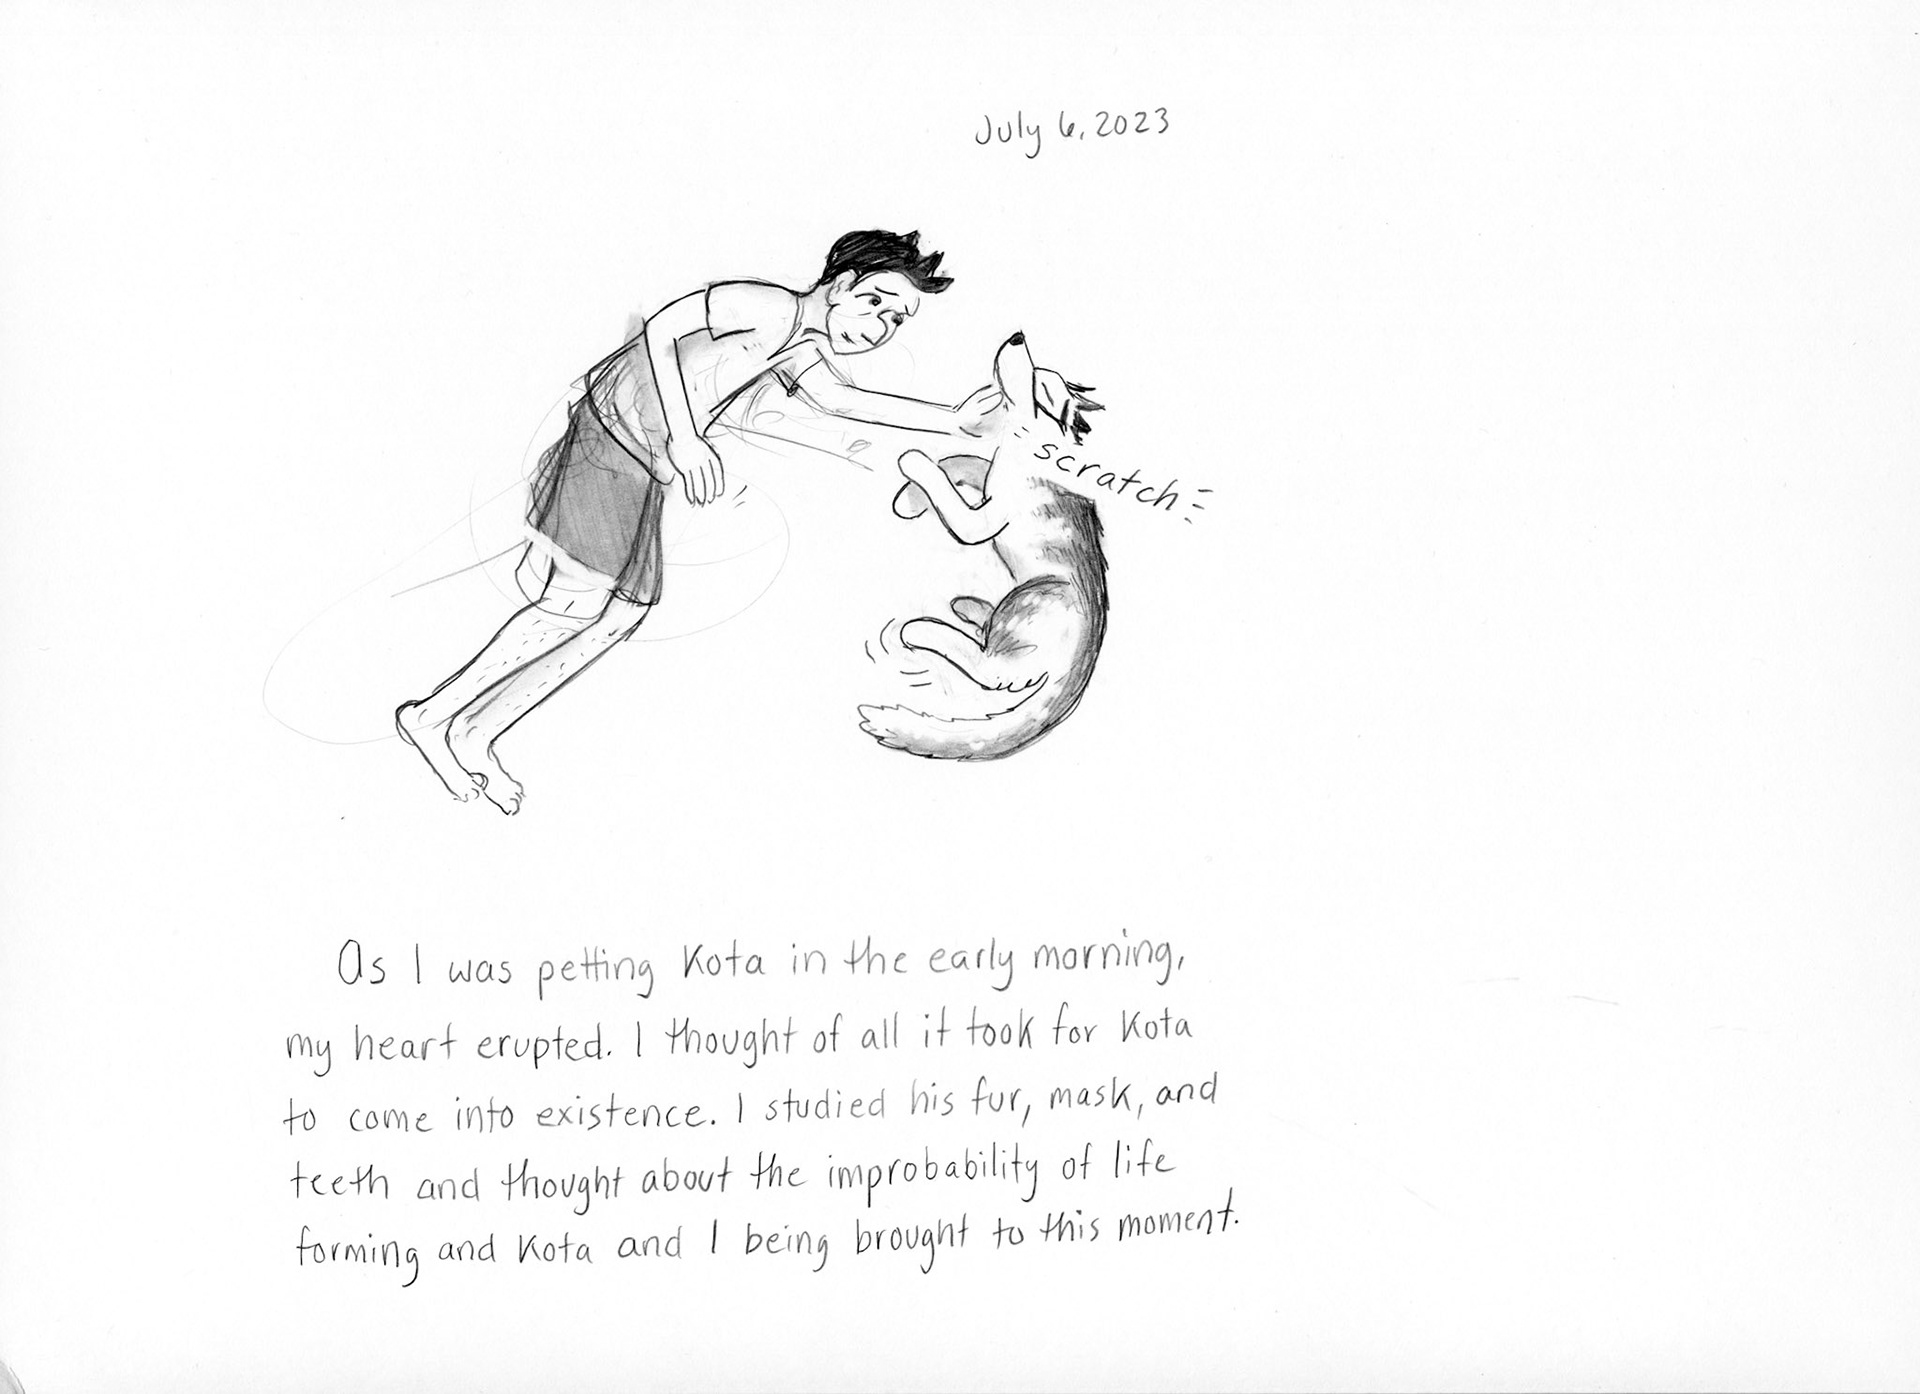 July 6, 2023
scratch
As I was petting Kota in the early morning,
my heart erupted. I thought of all it took for Kota
to come into existence. I studied his fur, mask, and
teeth and thought about the improbability of life
forming and Kota and I being brought to this moment.